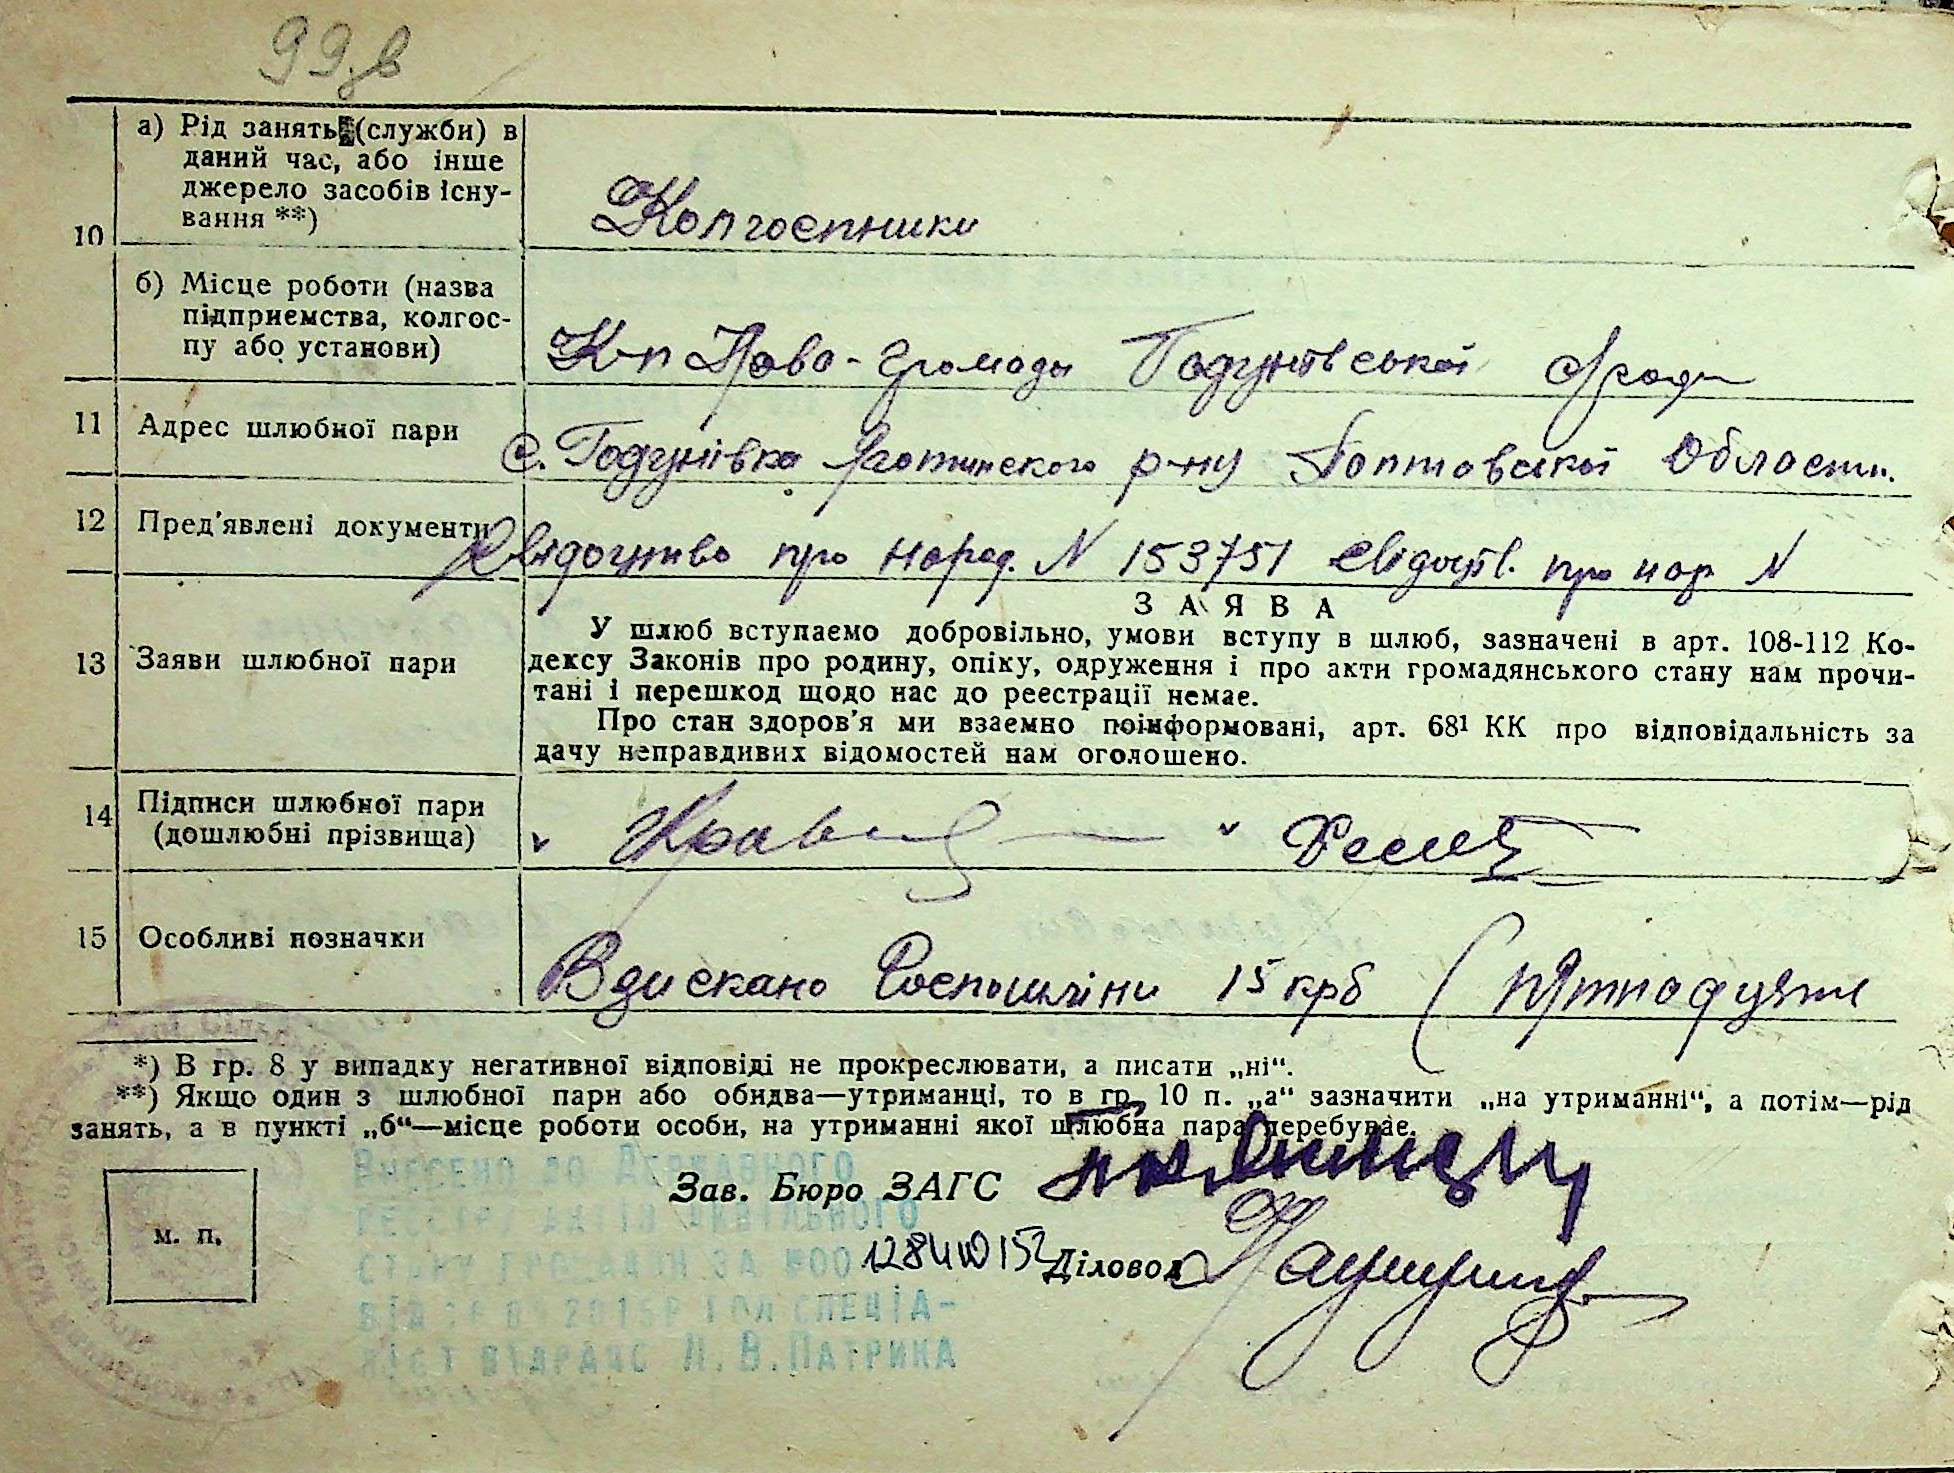 99 в
10 а) Рід занять (служби) в
даний час, або інше
джерело засобів існу-
вання **)
Колгоспники
б) Місце роботи (назва
підприємства, колгос-
пу або установи)
К-п Право-громади Годунівської с/ради
11 Адрес шлюбної пари
с. Годунівка р-ну Полтовської Области.
12 Пред'явлені документи
Свідоцтво про народ. N 153751 свідоцтв. про нар N
13 Заяви шлюбної пари
ЗАЯВА
У шлюб вступаємо добровільно, умови вступу в шлюб, зазначені в арт. 108-112 Ко-
дексу Законів про родину, опіку, одруження і про акти громадянського стану нам прочи-
тані і перешкод щодо нас до реєстрації немає.
Про стан здоров'я ми взаємно поінформовані, арт. 68¹ КК про відповідальність за
дачу неправдивих відомостей нам оголошено.
14 Підписи шлюбної пари
(дошлюбні прізвища)
15 Особливі позначки
Вдискано Госпошліни 15 крб (пятнадцять
*) В гр. 8 у випадку негативної відповіді не прокреслювати, а писати „ні“.
**) Якщо один з шлюбної пари або обидва—утриманці, то в гр. 10 п. „а“ зазначити „на утриманні“, а потім—рід
занять, а в пункті „б“—місце роботи особи, на утриманні якої шлюбна пара перебуває.
Внесено до Державного
реєстру актів цивільного
стану громадян за №00
128440152
2015р гол спеціа-
ліст відрацс Л. В. Патрика
Зав. Бюро ЗАГС
Діловод
м. п.